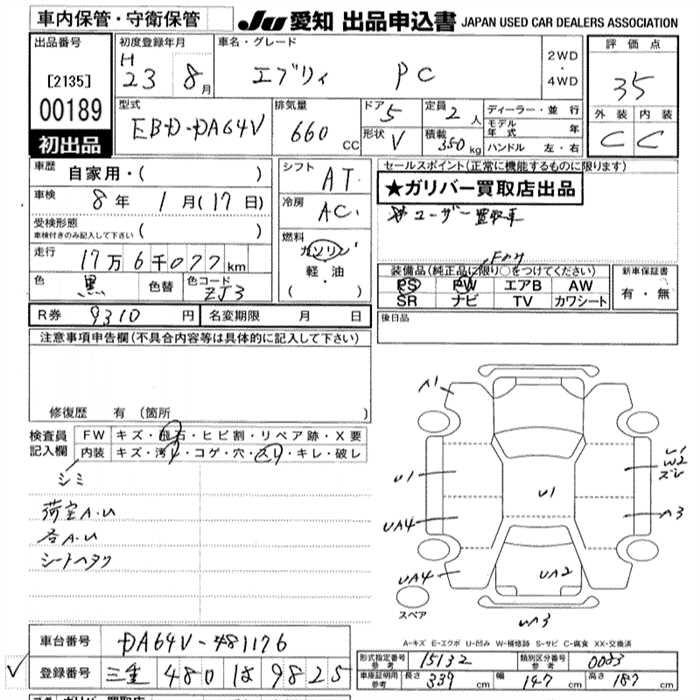 車内保管・守衛保管
JU 愛知 出品申込書 JAPAN USED CAR DEALERS ASSOCIATION
出品番号
[2135]
00189
初出品
初度登録年月
H
23年 8月
車名・グレード
エブリィ PC
2WD
・
4WD
評価点
3.5
外装 内装
C C
型式
EBD-DA64V
排気量
660 CC
ドア 5
形状 V
定員 2人
積載 350kg
ディーラー・並行
モデル年式 年
ハンドル 左・右
車歴 自家用・( )
車検 8年 1月(17日)
受検形態
車検付きのみ記入して下さい ( )
走行 17万6千077km
色 黒 色替 色コード ZJ3
シフト AT
冷房 AC
燃料
ガソリン
軽・油
( ・ )
セールスポイント(正常に機能するものに限ります)
★ガリバー買取店出品
ユーザー買取車
装備品(純正品に限り○をつけてください)
PS PW エアB AW
SR ナビ TV カワシート
新車保証書
有・無
R券 9310円 名変期限 月 日
後日品
注意事項申告欄(不具合内容等は具体的に記入して下さい)
修復歴 有(箇所 )
検査員
記入欄
FW キズ・飛石・ヒビ割・リペア跡・X要
内装 キズ・汚れ・コゲ・穴・スリ・キレ・破レ
シミ
荷室A.U
各A.U
シートヘタリ
A1
U1
W2
ズレ
U1
U1
UA4
A3
UA4
UA2
スペア
A-キズ E-エクボ U-凹み W-補修跡 S-サビ C-腐食 XX-交換済
車台番号 DA64V-481176
登録番号 三重 480 は 9825
形式指定番号
参考
15132
類別区分番号
参考
0003
車庫証明用
参考
長さ 339cm 幅 147cm 高さ 187cm